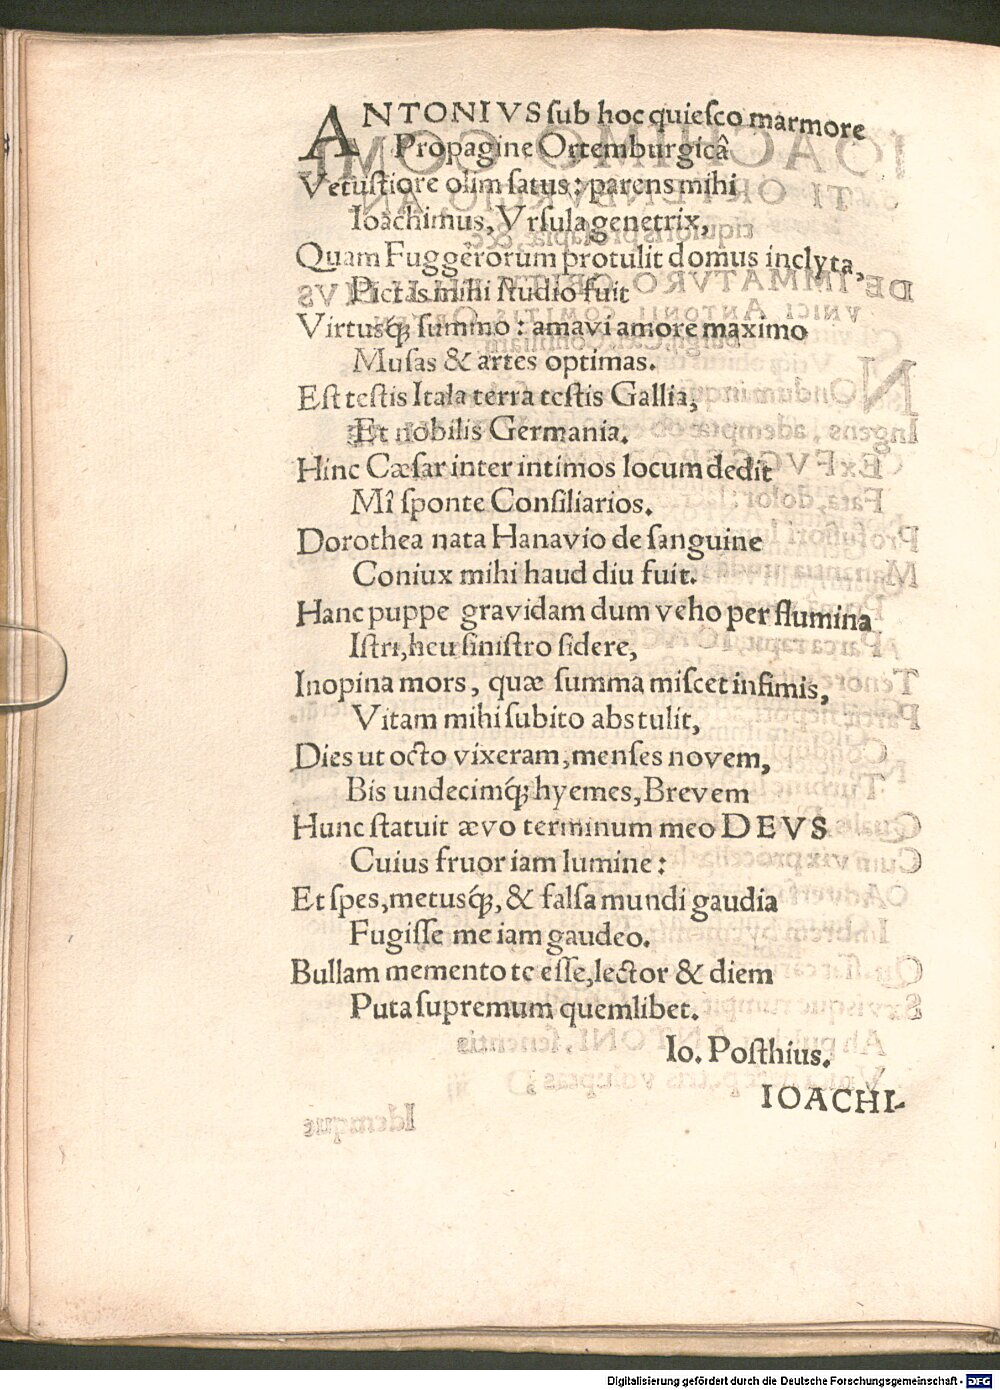 ANTONIVS sub hoc quiesco marmore
Propagine Ortemburgicâ
Vetustiore olim satus: parens mihi
Ioachimus, Vrsula genetrix,
Quam Fuggerorum protulit domus inclyta,
Pietas mihi studio fuit
Virtusq́; summo: amavi amore maximo
Musas & artes optimas.
Est testis Itala terra testis Gallia,
Et nobilis Germania.
Hinc Cæsar inter intimos locum dedit
Mî sponte Consiliarios.
Dorothea nata Hanavio de sanguine
Coniux mihi haud diu fuit.
Hanc puppe gravidam dum veho per flumina
Istri, heu sinistro sidere,
Inopina mors, quæ summa miscet infimis,
Vitam mihi subito abstulit,
Dies ut octo vixeram, menses novem,
Bis undecimq́; hyemes, Brevem
Hunc statuit ævo terminum meo DEVS
Cuius fruor iam lumine:
Et spes, metusq́;, & falsa mundi gaudia
Fugisse me iam gaudeo.
Bullam memento te esse, lector & diem
Puta supremum quemlibet.
Io. Posthius.
IOACHI-
Digitalisierung gefördert durch die Deutsche Forschungsgemeinschaft - DFG